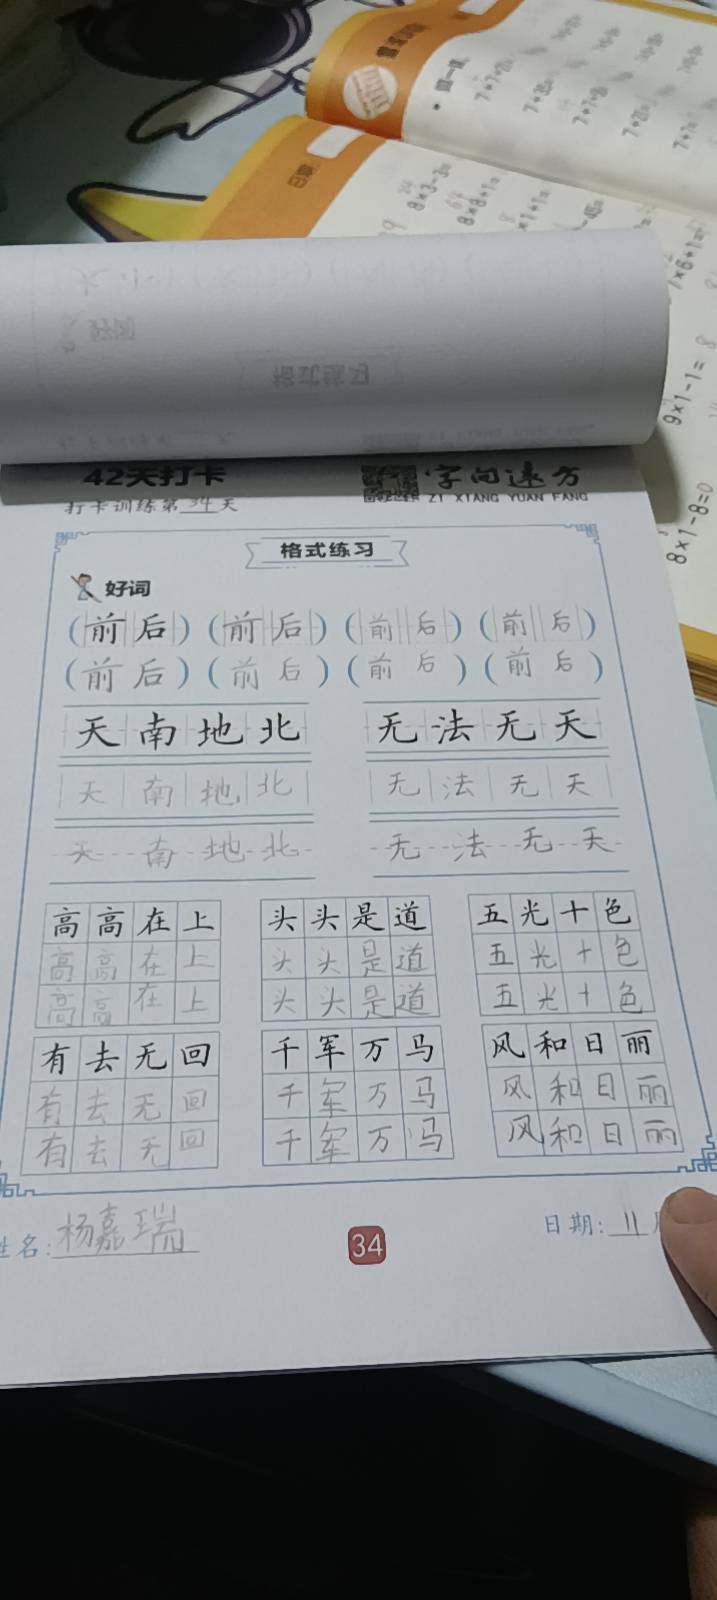 7+7=
8×3-3=
8×8+1=
×1+1=
-45=
7×6+1=
9×1-1= 8
8×1-8=0
日期:
格式练习
42天打卡
字向远方
打卡训练第34天
ZI XIANG YUAN FANG
格式练习
好词
(前后) (前后) (前后) (前后)
(前后) (前后) (前后) (前后)
天南地北 无法无天
天南地北 无法无天
天南地北 无法无天
高高在上 头头是道 五光十色
高高在上 头头是道 五光十色
高高在上 头头是道 五光十色
有去无回 千军万马 风和日丽
有去无回 千军万马 风和日丽
有去无回 千军万马 风和日丽
姓名:杨嘉瑞 34 日期:11月